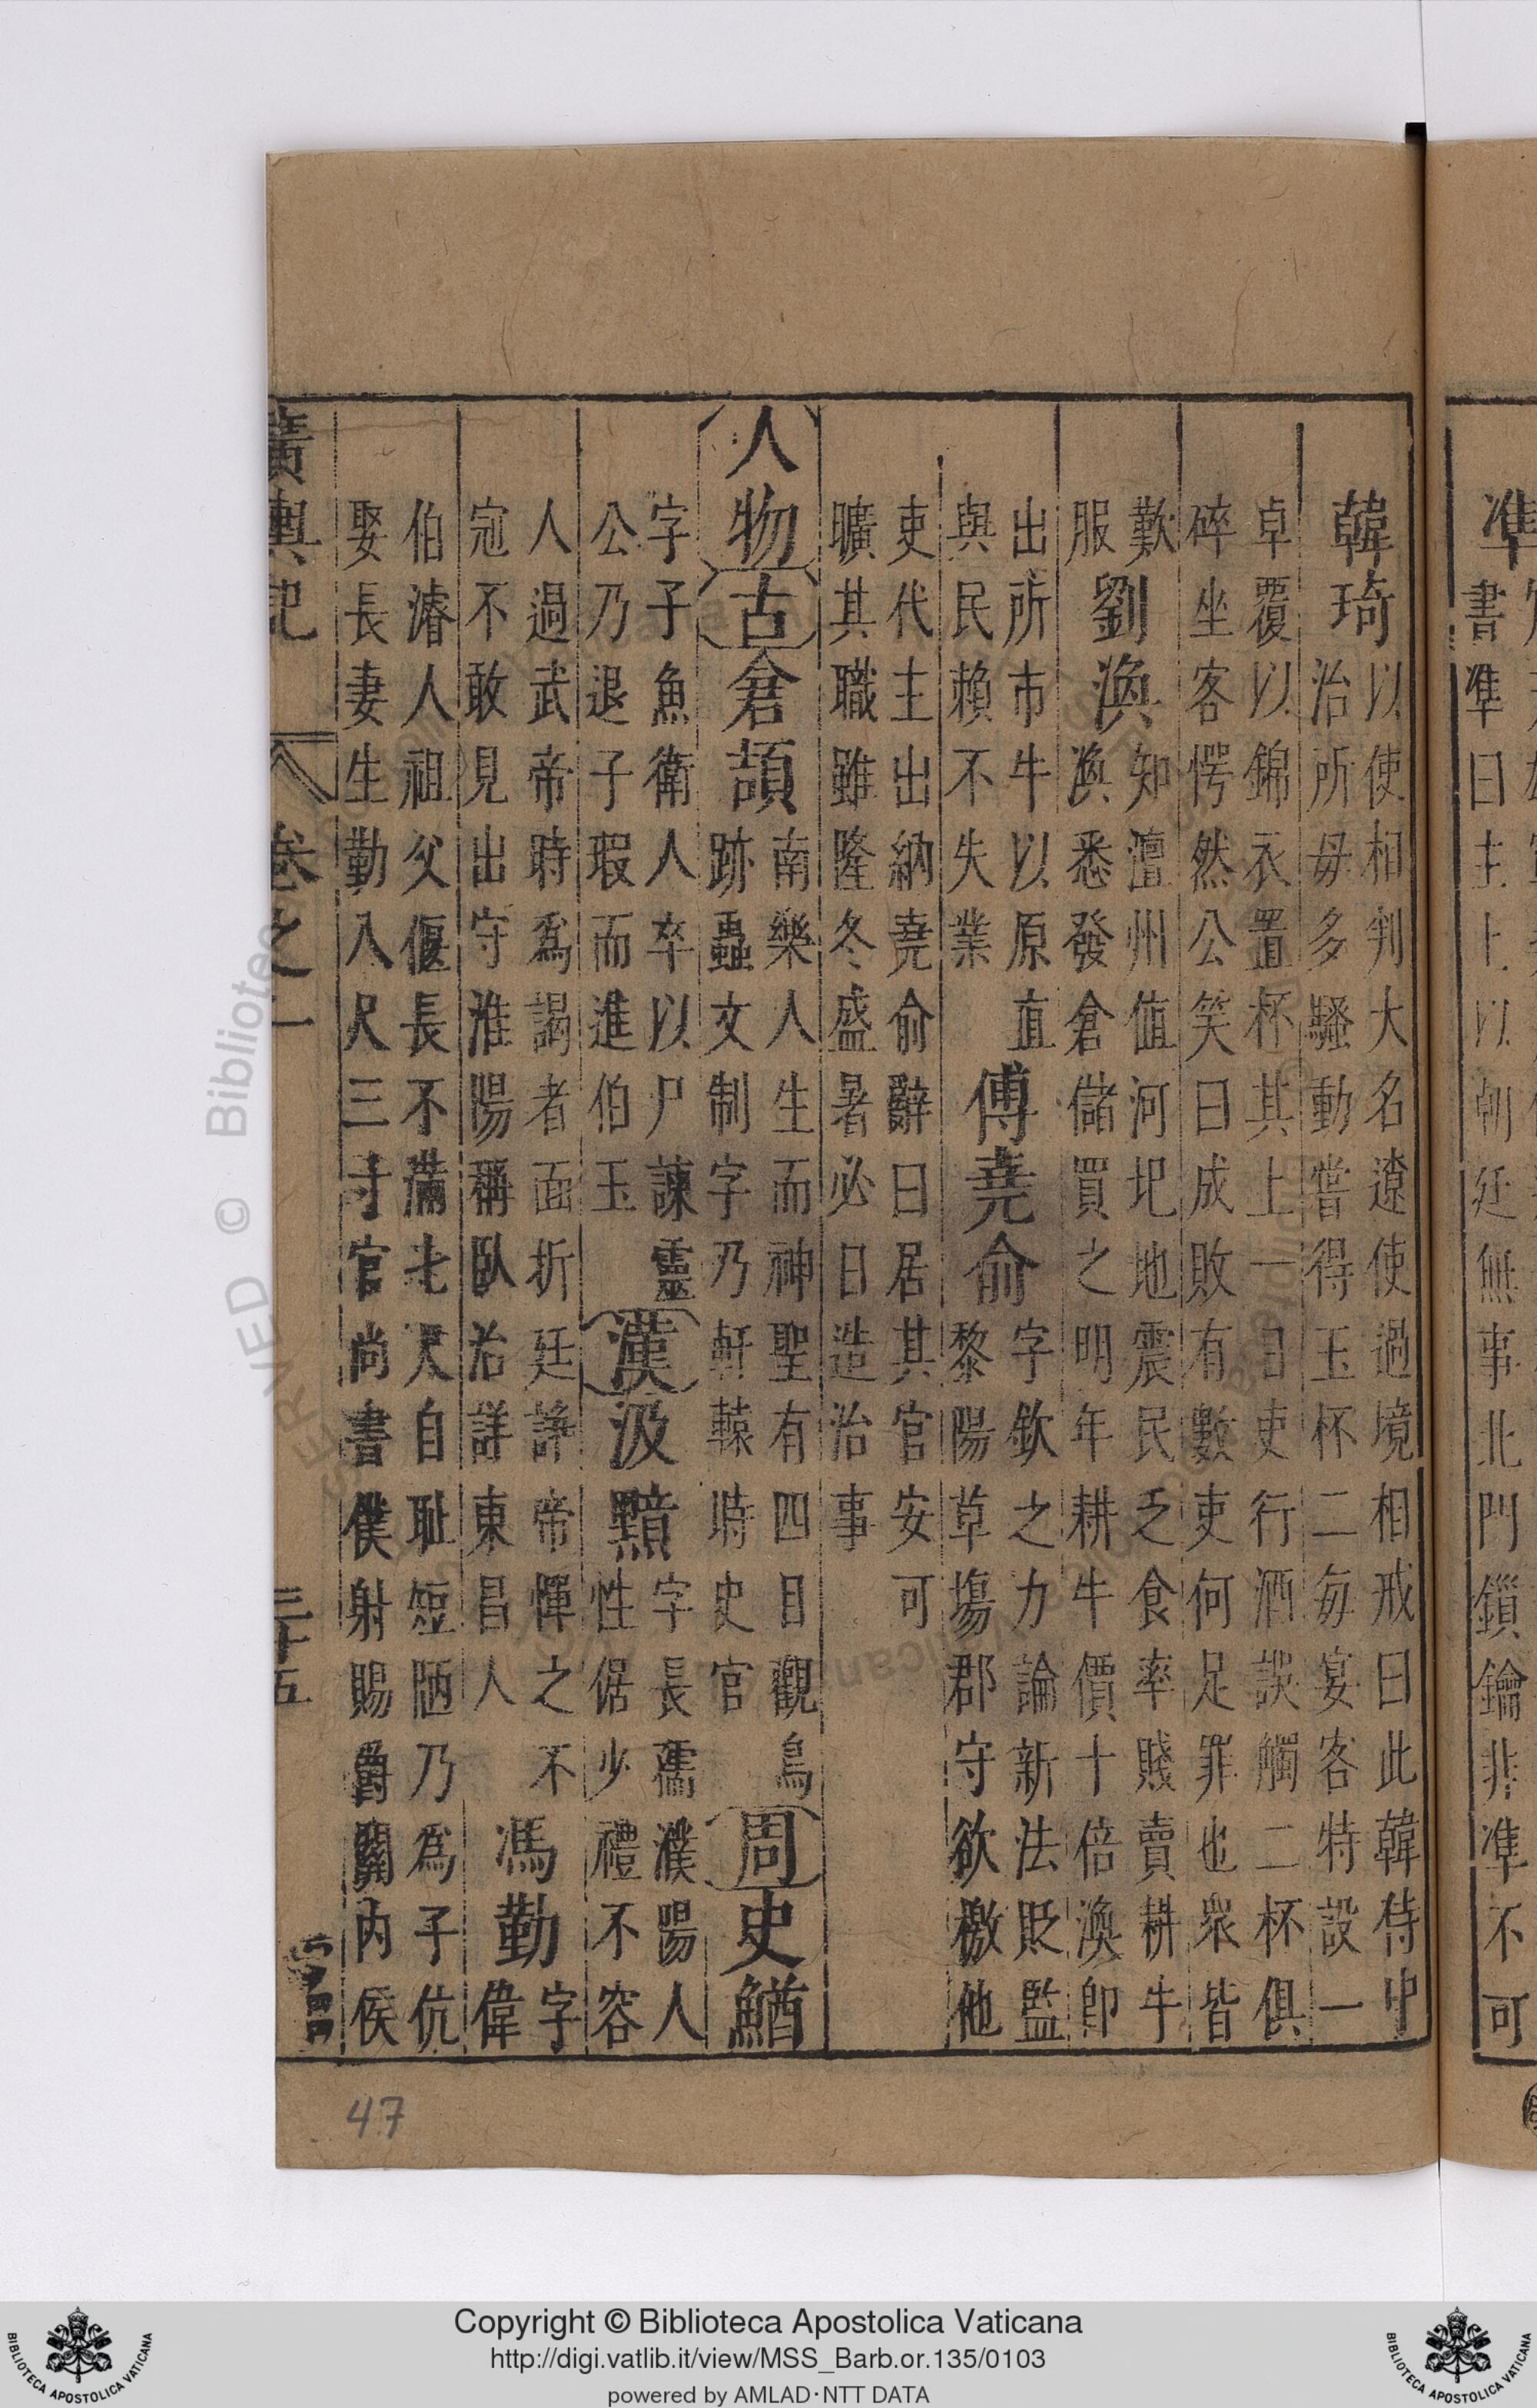 準
書準曰主上以朝廷無事北門鎖鑰非準不可
韓琦
以使相判大名遼使過境相戒曰此韓侍中
治所毋多騷動嘗得玉杯二每宴客特設一
卓覆以錦衣置杯其上一日吏行酒誤觸二杯俱
碎坐客愕然公笑曰成敗有數吏何足罪也衆皆
歎
服
劉渙
知澶州值河圯地震民乏食率賤賣耕牛
渙悉發倉儲買之明年耕牛價十倍渙即
出所市牛以原直
與民賴不失業
傅堯俞
字欽之力論新法貶監
黎陽草塲郡守欲檄他
吏代主出納堯俞辭曰居其官安可
曠其職雖隆冬盛暑必日造治事
人物 古 倉頡
南樂人生而神聖有四目觀鳥
跡蟲文制字乃軒轅時史官
周 史鰌
字子魚衛人卒以尸諫靈
公乃退子瑕而進伯玉
漢 汲黯
字長孺濮陽人
性倨少禮不容
人過武帝時為謁者面折廷諍帝憚之不
冦不敢見出守淮陽稱臥治詳東昌人
馮勤
字
偉
伯濬人祖父偃長不滿七尺自恥短陋乃為子伉
娶長妻生勤八尺三寸官尚書僕射賜爵關內侯
廣輿記 卷之一 三十五
47
Copyright © Biblioteca Apostolica Vaticana
http://digi.vatlib.it/view/MSS_Barb.or.135/0103
powered by AMLAD·NTT DATA
BIBLIOTECA APOSTOLICA VATICANA
BIBLIOTECA APOSTOLICA VATICANA